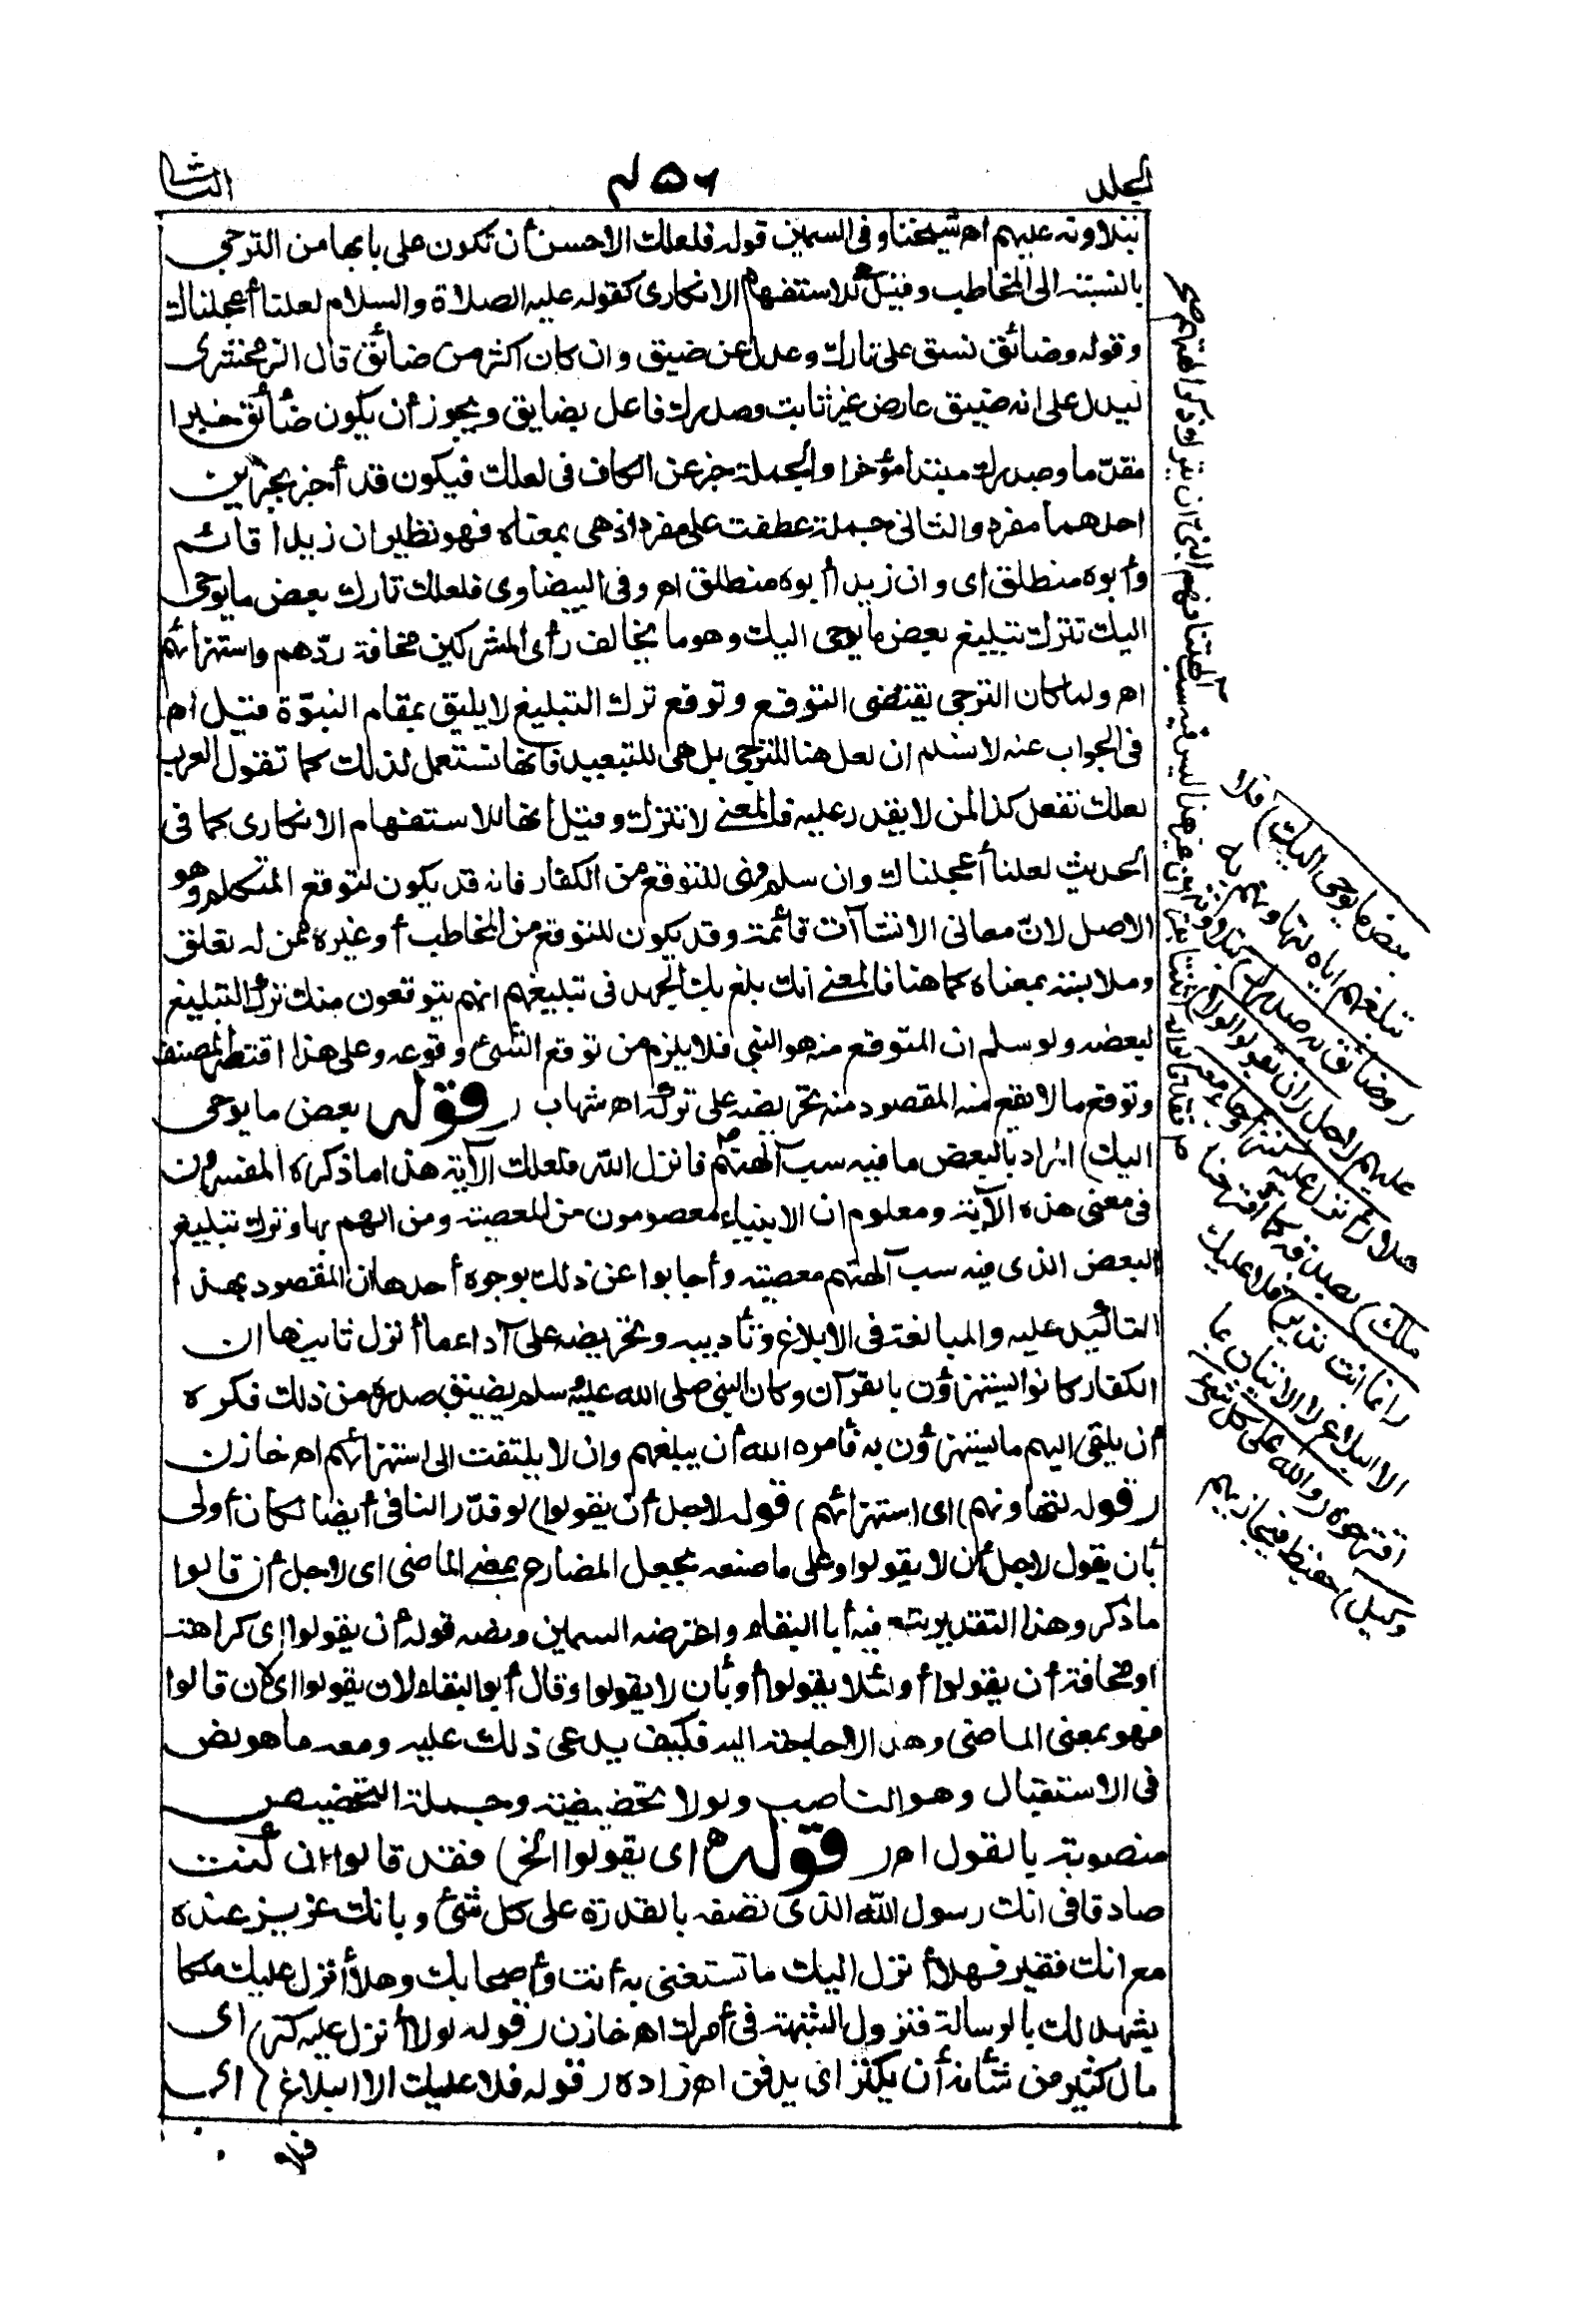 المجلد
٤٥٦
الثاني
بتلاوته عليهم اه شيخنا وفى السمين قوله فلعلك الاحسن أن تكون على بابها من الترجى
بالنسبة الى المخاطب وقيل للاستفهام الانكارى كقوله عليه الصلاة والسلام لعلنا أعجلناك
وقوله وضائق نسق على تارك وعدل عن ضيق وان كان اكثر من ضائق قال الزمخشرى
ليدل على انه ضيق عارض غير ثابت وصدرك فاعل بضايق ويجوز أن يكون ضائق خبرا
مقدّما وصدرك مبتدا مؤخرا والجملة خبر عن الكاف فى لعلك فيكون قد أخبر بخبرين
احدهما مفرد والثانى جملة عطفت على مفرد اذهى بمعناه فهو نظير ان زيدا قائم
وأبوه منطلق اى وان زيدا أبوه منطلق اه وفى البيضاوى فلعلك تارك بعض ما يوحى
اليك تترك تبليغ بعض ما يوحى اليك وهو ما يخالف رأى المشركين مخافة ردّهم واستهزائهم
اه ولما كان الترجى يقتضى التوقع وتوقع ترك التبليغ لا يليق بمقام النبوّة قيل اه
فى الجواب عنه لا نسلم ان لعل هنا للترجى بل هى للتبعيد فانها تستعمل لذلك كما تقول العرب
لعلك تفعل كذا لمن لا يقدر عليه فالمعنى لا تترك وقيل انها للاستفهام الانكارى كما فى
الحديث لعلنا أعجلناك وان سلم فهى للتوقع من الكفار فانه قد يكون لتوقع المتكلم وهو
الاصل لانّ معانى الانشاآت قائمة وقد يكون للتوقع من المخاطب أو غيره ممن له تعلق
وملابسة بمعناه كما هنا فالمعنى انك بلغ بك الجهد فى تبليغهم انهم يتوقعون منك ترك التبليغ
لبعضه ولو سلم ان المتوقع منه هو النبى فلا يلزم من توقع الشئ وقوعه وعلى هذا اقتصر المصنف
وتوقع ما لا يقع منه المقصود منه تحريضه على تركه اه شهاب ( قوله بعض ما يوحى
اليك) المراد بالبعض ما فيه سب آلهتهم فانزل الله فلعلك الآية هذا ما ذكره المفسرون
فى معنى هذه الآية ومعلوم ان الانبياء معصومون من المعصية ومن الهم بها وترك تبليغ
البعض الذى فيه سب آلهتهم معصية وأجابوا عن ذلك بوجوه أحدها ان المقصود بهذا
التأكيد عليه والمبالغة فى الابلاغ وتأديبه وتحريضه على آداء ما أنزل ثانيها ان
الكفار كانوا يستهزؤن بالقرآن وكان النبى صلى الله عليه وسلم يضيق صدره من ذلك فكره
أن يلقى اليهم ما يستهزؤن به فأمره الله أن يبلغهم وان لا يلتفت الى استهزائهم اه خازن
(قوله لتهاونهم) اى استهزائهم) قوله لاجل أن يقولوا) لو قدّر النافى أيضا لكان أولى
بأن يقول لاجل أن لا يقولوا وعلى ما صنعه يجعل المضارع بمعنى الماضى اى لاجل أن قالوا
ما ذكر وهذا التقدير فيه أبا البقاء واعترضه السمين ونصه قوله أن يقولوا اى كراهة
أو مخافة أن يقولوا أو لئلا يقولوا أو بأن لا يقولوا وقال أبو البقاء لان يقولوا اى لان قالوا
فهو بمعنى الماضى وهذا لا حاجة اليه فكيف يدعى ذلك عليه ومعه ما هو نص
فى الاستقبال وهو الناصب ولولا تحضيضية وجملة التحضيض
منصوبة بالقول اه ( قوله اى يقولوا الخ) فقد قالوا ان كنت
صادقا فى انك رسول الله الذى تصفه بالقدرة على كل شئ وبانك عزيز عنده
مع انك فقير فهلا أنزل اليك ما تستغنى به أنت وأصحابك وهلا أنزل عليك ملكا
يشهد لك بالرسالة فتزول الشبهة فى أمرك اه خازن (قوله لولا أنزل عليه كنز) اى
مال كثير من شأنه أن يكنز اى يدفن اه زاده (قوله فلا عليك الا البلاغ) اى
فلا
بعض ما يوحى اليك) فلا
تبلغهم اياه لتهاونهم به
(وضائق به صدرك) بتلاوته
عليهم لاجل (ان يقولوا لولا)
هلا (أنزل عليه كنز أو جاء معه
ملك) يصدقه كما اقترحنا
(انما انت نذير) فلا عليك
الا البلاغ لا الاتيان بما
اقترحوه (والله على كل شئ
وكيل) حفيظ فيجازيهم